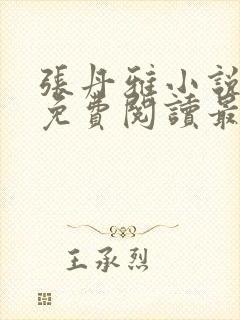 張丹雅小說
免費閱讀最
王承烈